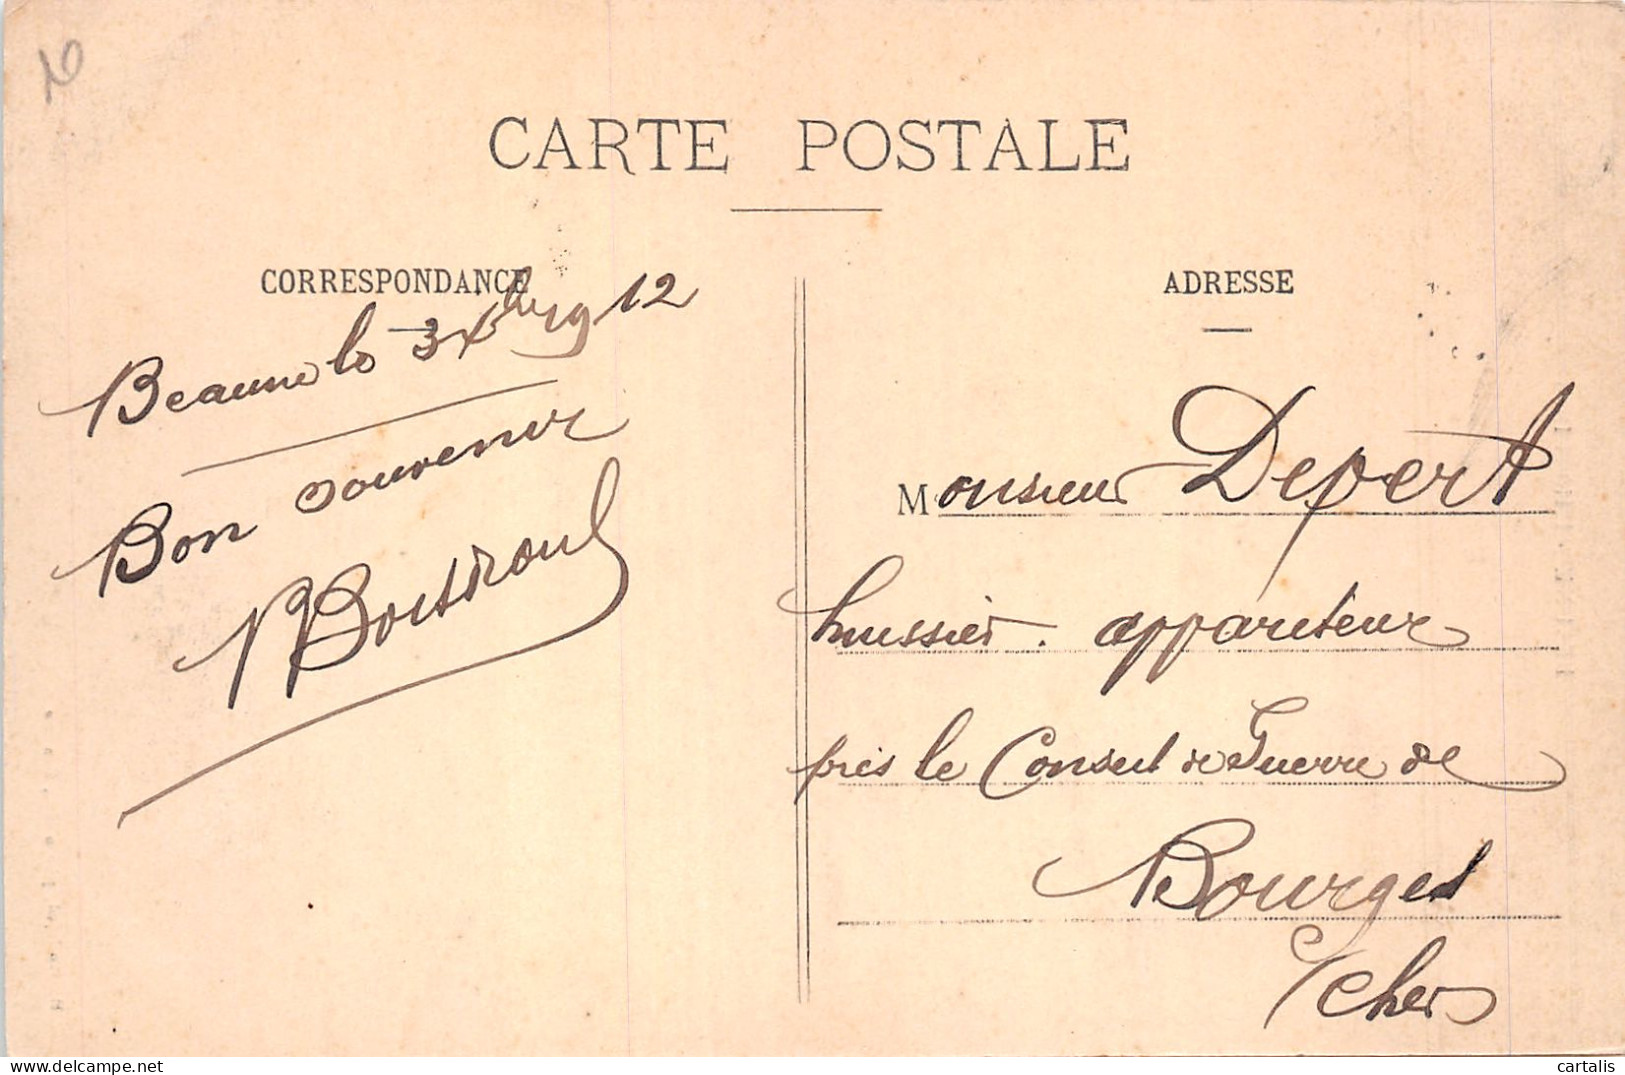 CARTE POSTALE
CORRESPONDANCE
Beaune le 3 Xbre 1912
Bon souvenir
ADRESSE
Monsieur Depert
huissier. appariteur
près le Conseil de Guerre de
Bourges
Cher
delcampe.net
cartalis